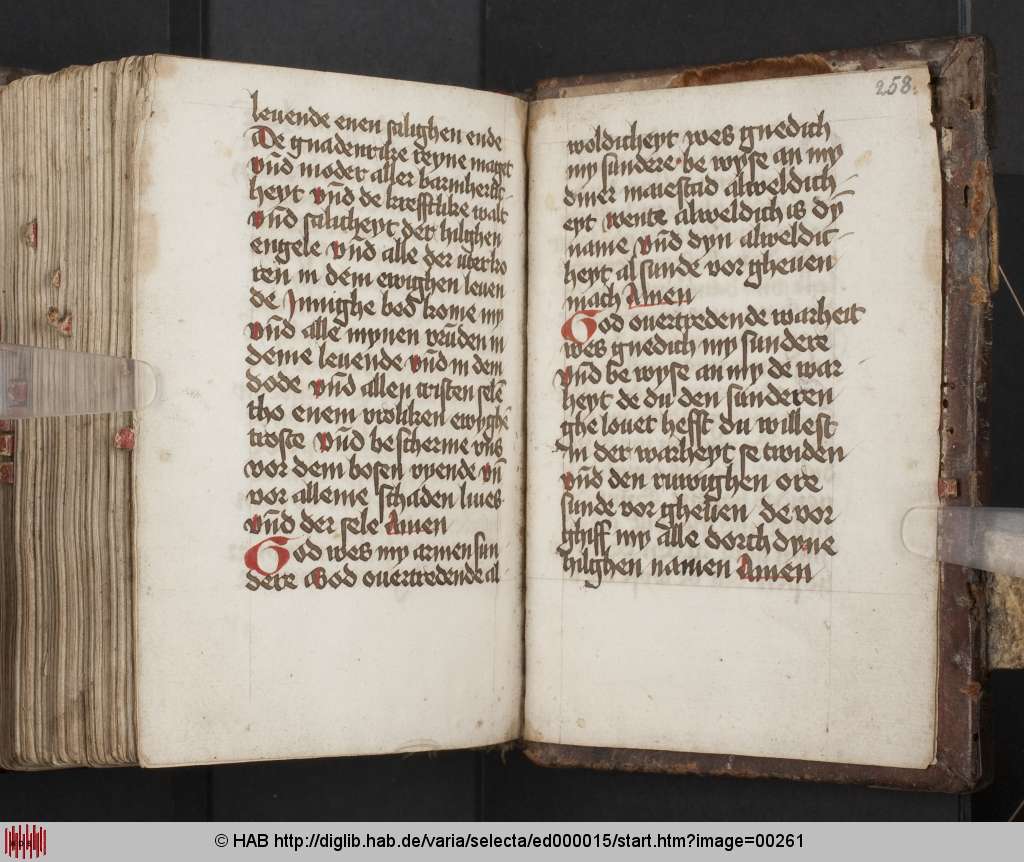 leuende enen salighen ende
De gnadenrike reyne maget
vñd moder aller barmhertic
heyt vñd de krefftlike walt
vñd salicheyt der hilghen
engele vñd alle der
ren in dem ewighen leuen
de Innighe bod kome my
vñd alle mynen vrůden in
deme leuende vñd in dem
dode vñd allen cristen selē
tho enem vroliken ewyghē
troste vñd bescherme vns
vor dem bosen vyende vñ
vor alleme schaden liues
vñd der sele Amen
God wes my armen sun
dere God ouertredende al
258.
woldicheyt wes gnedich
my sundere be wyse an my
diner maiestad alweldich
eyt wente alweldich is dȳ
name vñd dyn alweldic
heyt al sunde vor gheuen
mach Amen
God ouertredende warheit
wes gnedich my sundere
vñd be wyse an my de war
heyt de du den sunderen
ghe louet hefft du willest
In der warheyt se twiden
vñd den ruwighen ore
sunde vor gheuen de vor
ghiff my alle dorch dyne
hilghen namen Amen
© HAB http://diglib.hab.de/varia/selecta/ed000015/start.htm?image=00261